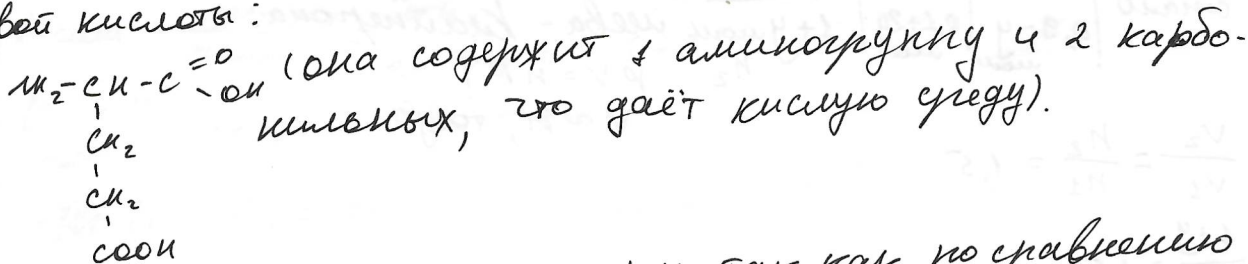 вой кислоты:
NH₂-CH-C =O -OH (она содержит 1 аминогруппу и 2 карбо-
нильных, что даёт кислую среду).
CH₂
CH₂
COOH
так как по сравнению